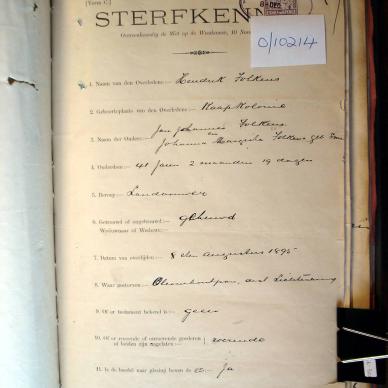 [Form C.]
STERFKENN
Overeenkomstig de Wet op de Weeskamer, 10 Nov
8 DEC
O/10214
1. Naam van den Overledene: Hendrik Folkens
2. Geboorteplaats van den Overledene: Kaap Kolonie
Jan Johannes Folkens
3. Namen der Ouders: en
Johanna Folkens geb
4. Ouderdom: 41 Jaren 2 maanden 19 dagen
5. Beroep: Landbouwer
6. Getrouwd of ongetrouwd: gehuwd
Weduwnaar of Weduwe:
7. Datum van overlijden: 8 sten Augustus 1895
8. Waar gestorven: dist Lichtenburg
9. Of er testament bekend is: geen
10. Of er roerende of onroerende goederen
of beiden zijn nagelaten: roerende
11. Is de boedel naar gissing boven de £ Ja